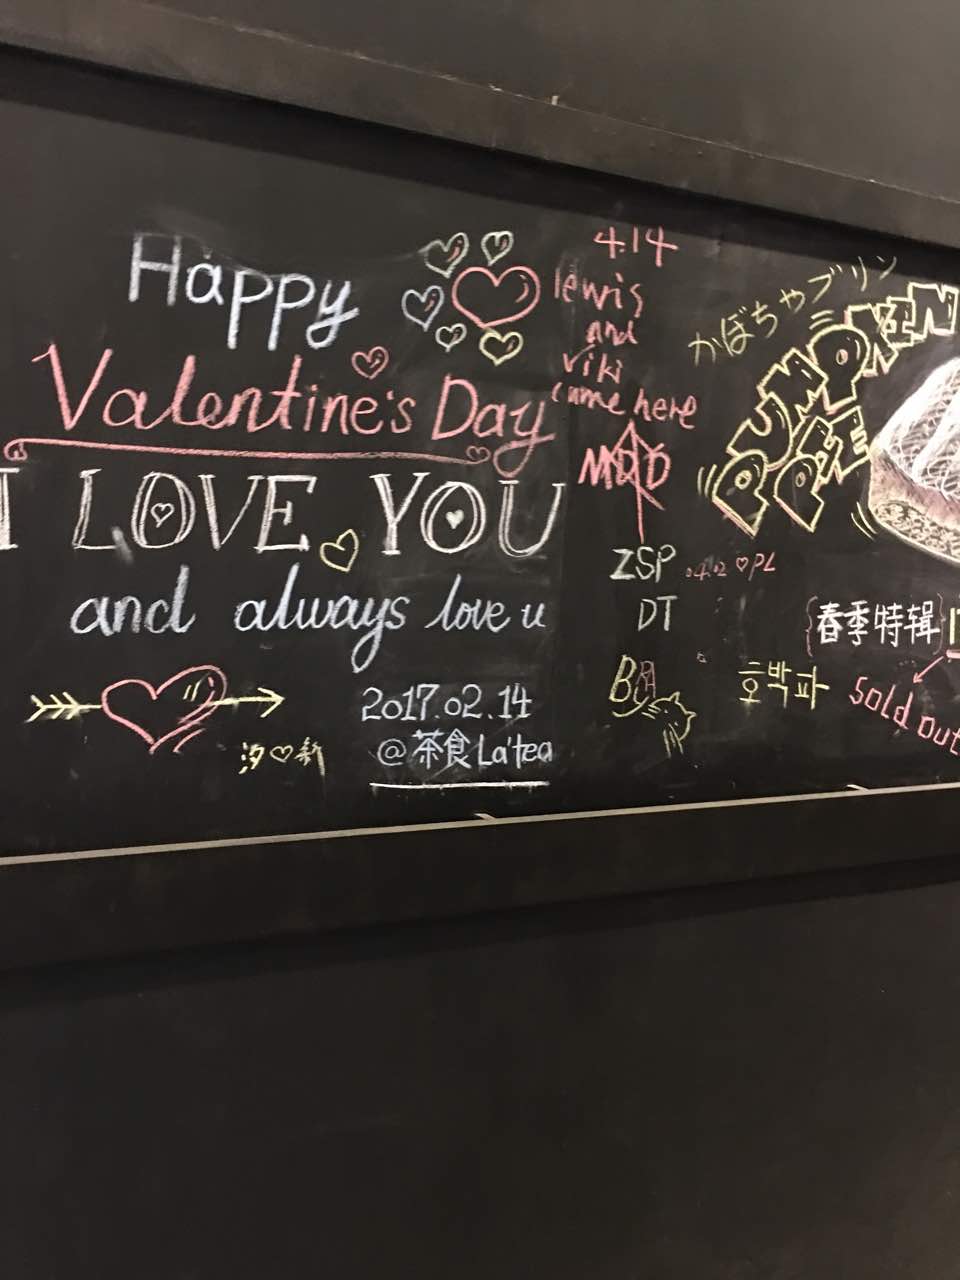 Happy
Valentine's Day
I LOVE YOU
and always love u
汐♡新
2017.02.14
@茶食La'tea
4.14
lewis
and
viki
came here
ZSP
04.02 ♡PL
DT
かぼちゃプリン
PUMPKIN
PIE
春季特辑
호박파
Sold out